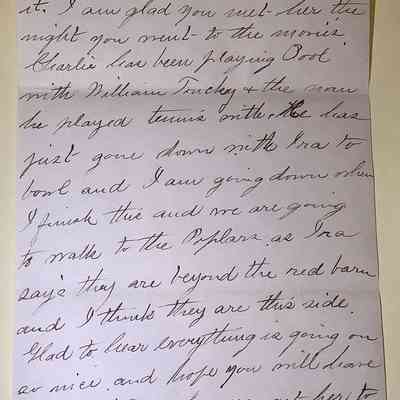 it. I am glad you met her the
night you went to the movies.
Charlie has been playing Pool
with William & the man
he played tennis with. He has
just gone down with Ira to
bowl and I am going down when
I finish this and we are going
to walk to the Poplars as Ira
says they are beyond the red barn
and I think they are this side.
Glad to hear everything is going on
so nice and hope you will leave
her to